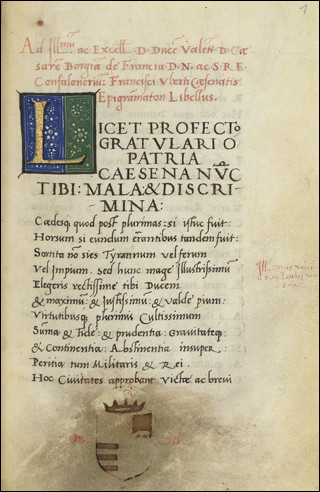 1
Ad Illmũ ac Excell D. Ducẽ Valen̄ D Cæ
sarẽ Borgiã de Francia D. N. ac S. R. E.
Confaloneriũ: Francisci Vberti Cæsenatis
Epigram̃aton Libellus.
LICET PROFECTO
GRATVLARI O
PATRIA
CAESENA NVC
TIBI: MALA & DISCRI-
MINA:
Cædesq; quod post plurimas: si istuc fuit:
Horsum si eundum erantibus tandem fuit:
Sortita no sies Tyrannum vel ferum
Vel Impium. sed hunc mage Illustrissimũ
Elegeris rectissime tibi Ducem
& maximũ: & Justissimũ: & valde pium:
Virtutibusq; plurimis Cultissimum
Suma & Fide: & prudentia: Gravitateq;
& Continentia: Abstinentia insuper:
Peritia tum Militaris & Rei.
Hoc Civitates approbant Victæ ac brevi